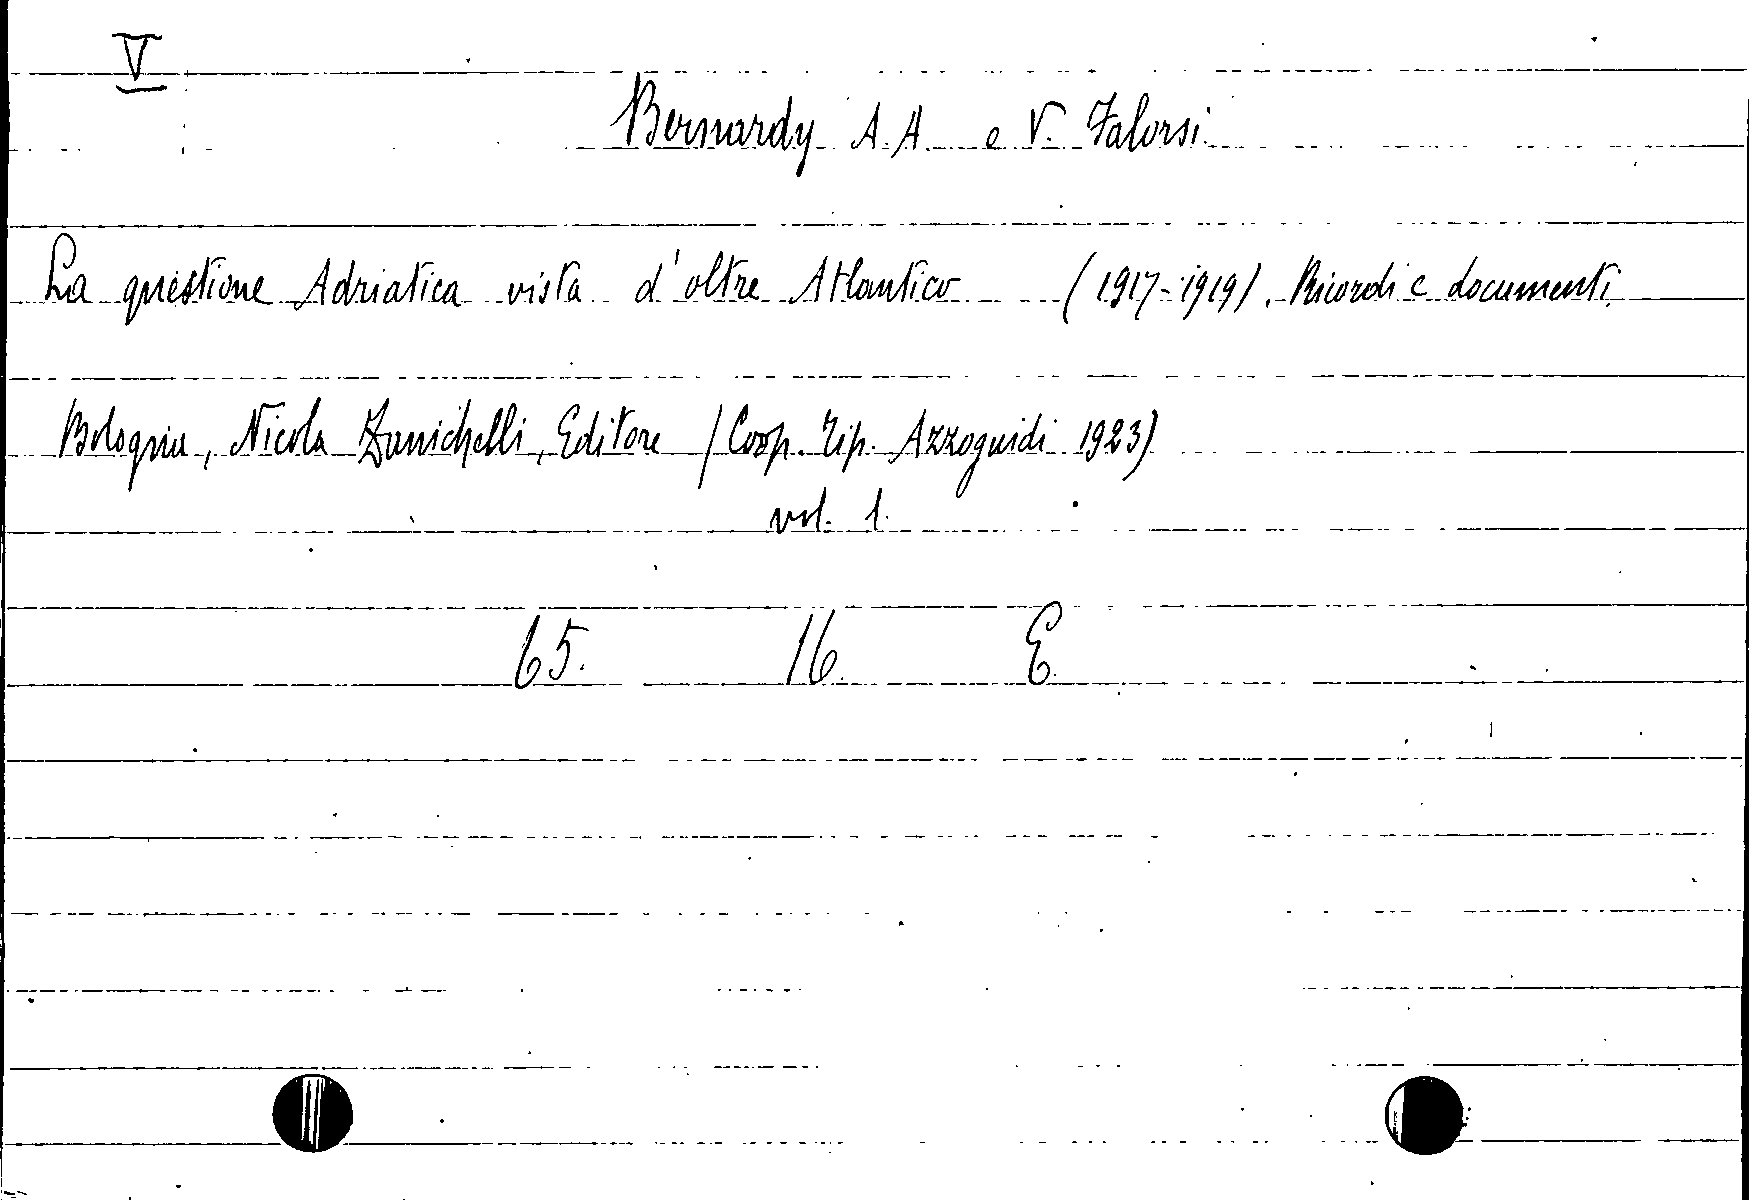 V
Bernardy A. A. e V. Falorsi.
La questione Adriatica vista d'oltre Atlantico (1917-1919). Ricordi e documenti.
Bologna, Nicola Zanichelli, Editore (Coop. Tip. Azzoguidi 1923)
vol. 1.
65. 16. E.